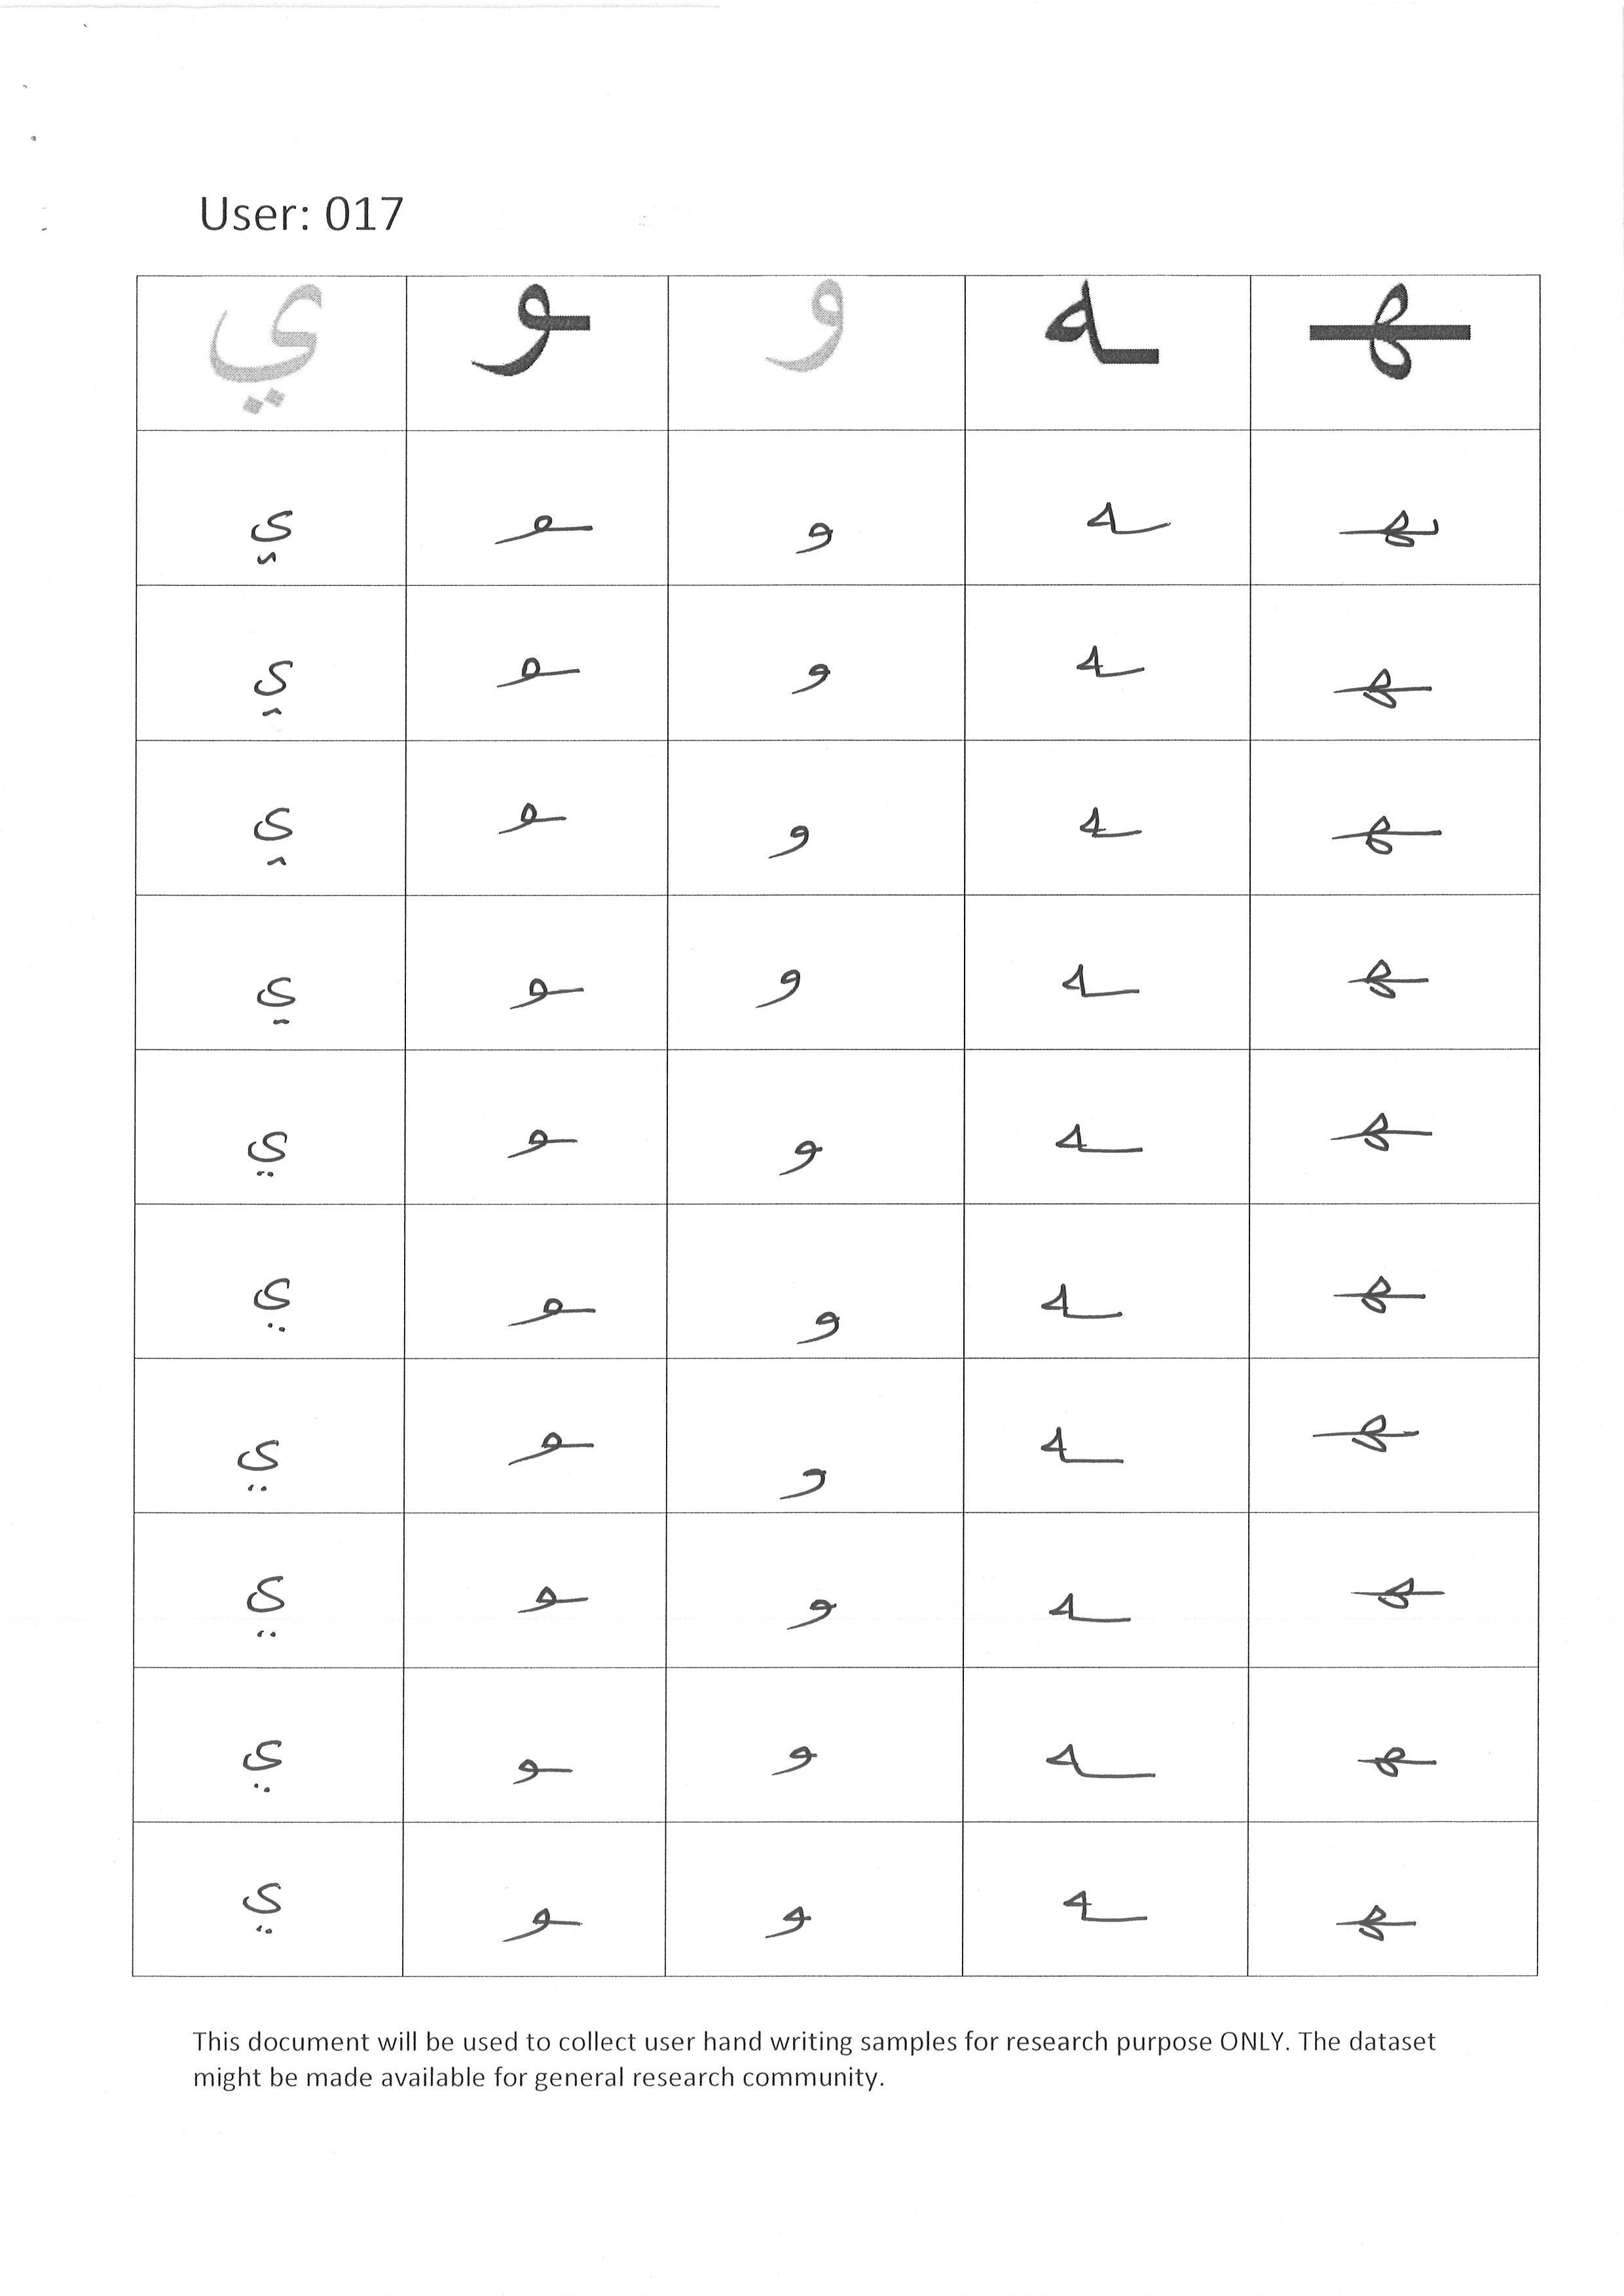 User: 017
ي ـو و ـه ـهـ
ي ـو و ـه ـهـ
ي ـو و ـه ـهـ
ي ـو و ـه ـهـ
ي ـو و ـه ـهـ
ي ـو و ـه ـهـ
ي ـو و ـه ـهـ
ي ـو و ـه ـهـ
ي ـو و ـه ـهـ
ي ـو و ـه ـهـ
ي ـو و ـه ـهـ
This document will be used to collect user hand writing samples for research purpose ONLY. The dataset
might be made available for general research community.